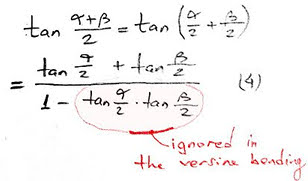 tan (α+β)/2 = tan (α/2 + β/2)
= (tan α/2 + tan β/2) / (1 - tan α/2 · tan β/2) (4)
ignored in
the versine bending